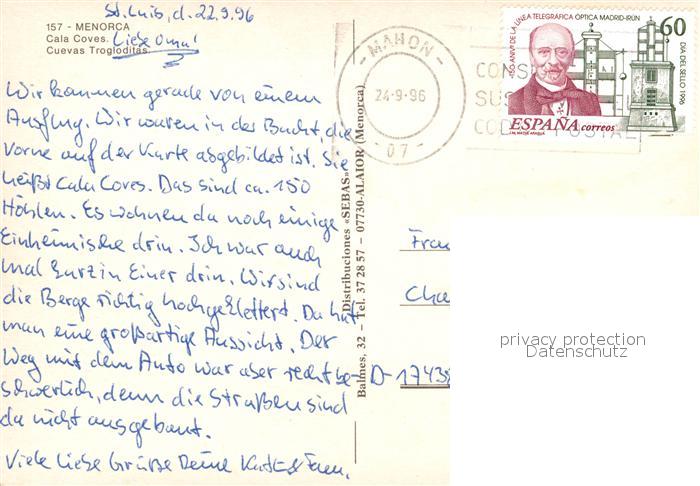 St. Luis, d. 22.9.96
157 - MENORCA
Cala Coves.
Cuevas Trogloditas.
Liebe Oma!
Wir kommen gerade von einem
Ausflug. Wir waren in der Bucht, die
vorne auf der Karte abgebildet ist. Sie
heißt Cala Coves. Das sind ca. 150
Höhlen. Es wohnen da noch einige
Einheimische drin. Ich war auch
mal kurz in einer drin. Wir sind
die Berge richtig hochgeklettert. Da hat
man eine großartige Aussicht. Der
Weg mit dem Auto war aber recht be-
schwerlich, denn die Straßen sind
da nicht ausgebaut.
Viele liebe Grüße Deine
Distribuciones «SEBAS»
Balmes, 32 – Tel. 37 28 57 – 07730-ALAIOR (Menorca)
- MAHON -
24-9-96
- 07 -
CONS
SU
CO POSTAL
150 ANIV. DE LA LINEA TELEGRAFICA OPTICA MADRID-IRÚN
60
DIA DEL SELLO 1996
ESPAÑA correos
Frau
Cha
D-17438
privacy protection
Datenschutz